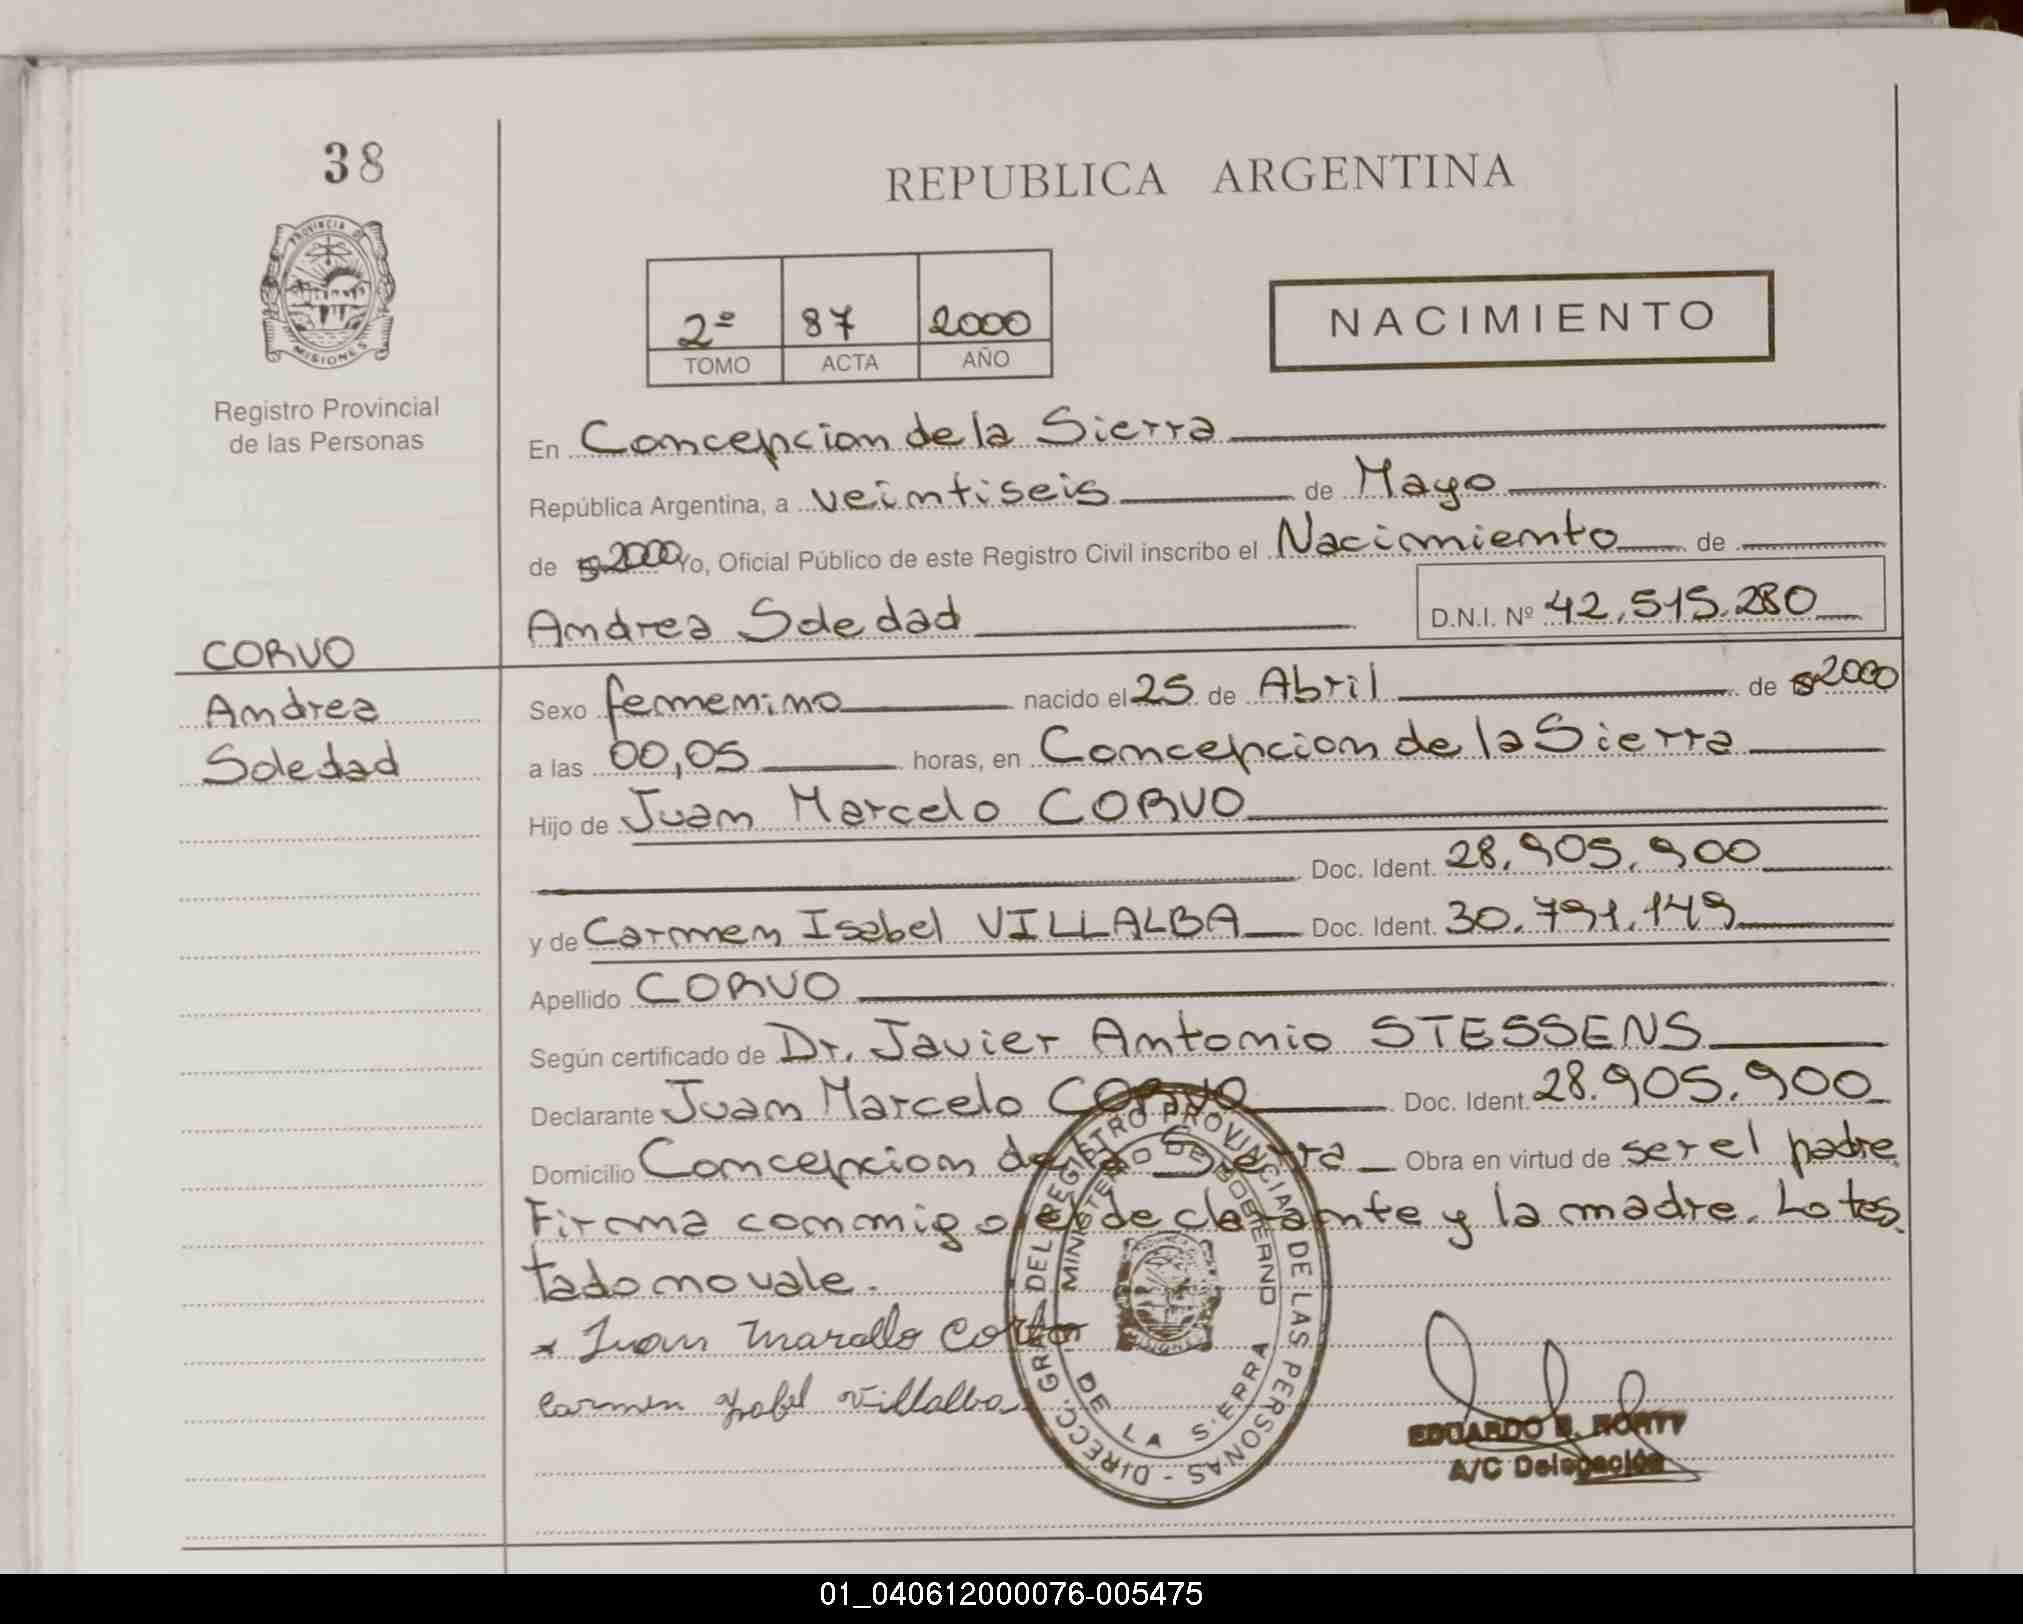 38
PROVINCIA DE
MISIONES
Registro Provincial
de las Personas
CORVO
Andrea
Soledad
REPUBLICA ARGENTINA
2º 87 2000
TOMO ACTA AÑO
NACIMIENTO
En Concepcion de la Sierra
República Argentina, a veintiseis de Mayo
de 2000 Yo, Oficial Público de este Registro Civil inscribo el Nacimiento de
Andrea Soledad D.N.I. Nº 42.515.280
Sexo femenino nacido el 25 de Abril de 2000
a las 00,05 horas, en Concepcion de la Sierra
Hijo de Juan Marcelo CORVO
Doc. Ident. 28.905.900
y de Carmen Isabel VILLALBA Doc. Ident. 30.791.149
Apellido CORVO
Según certificado de Dr. Javier Antonio STESSENS
Declarante Juan Marcelo CORVO Doc. Ident. 28.905.900
Domicilio Concepcion de la Sierra Obra en virtud de ser el padre
Firma conmigo el declarante y la madre. Lo tes
tado no vale.
Juan Marcello Corvo
Carmen Ysabel Villalba
DIRECC. GRAL DEL REGISTRO PROVINCIAL DE LAS PERSONAS -
MINISTERIO DE GOBIERNO
DE LA SIERRA
EDUARDO
A/C Delegación
01_040612000076-005475